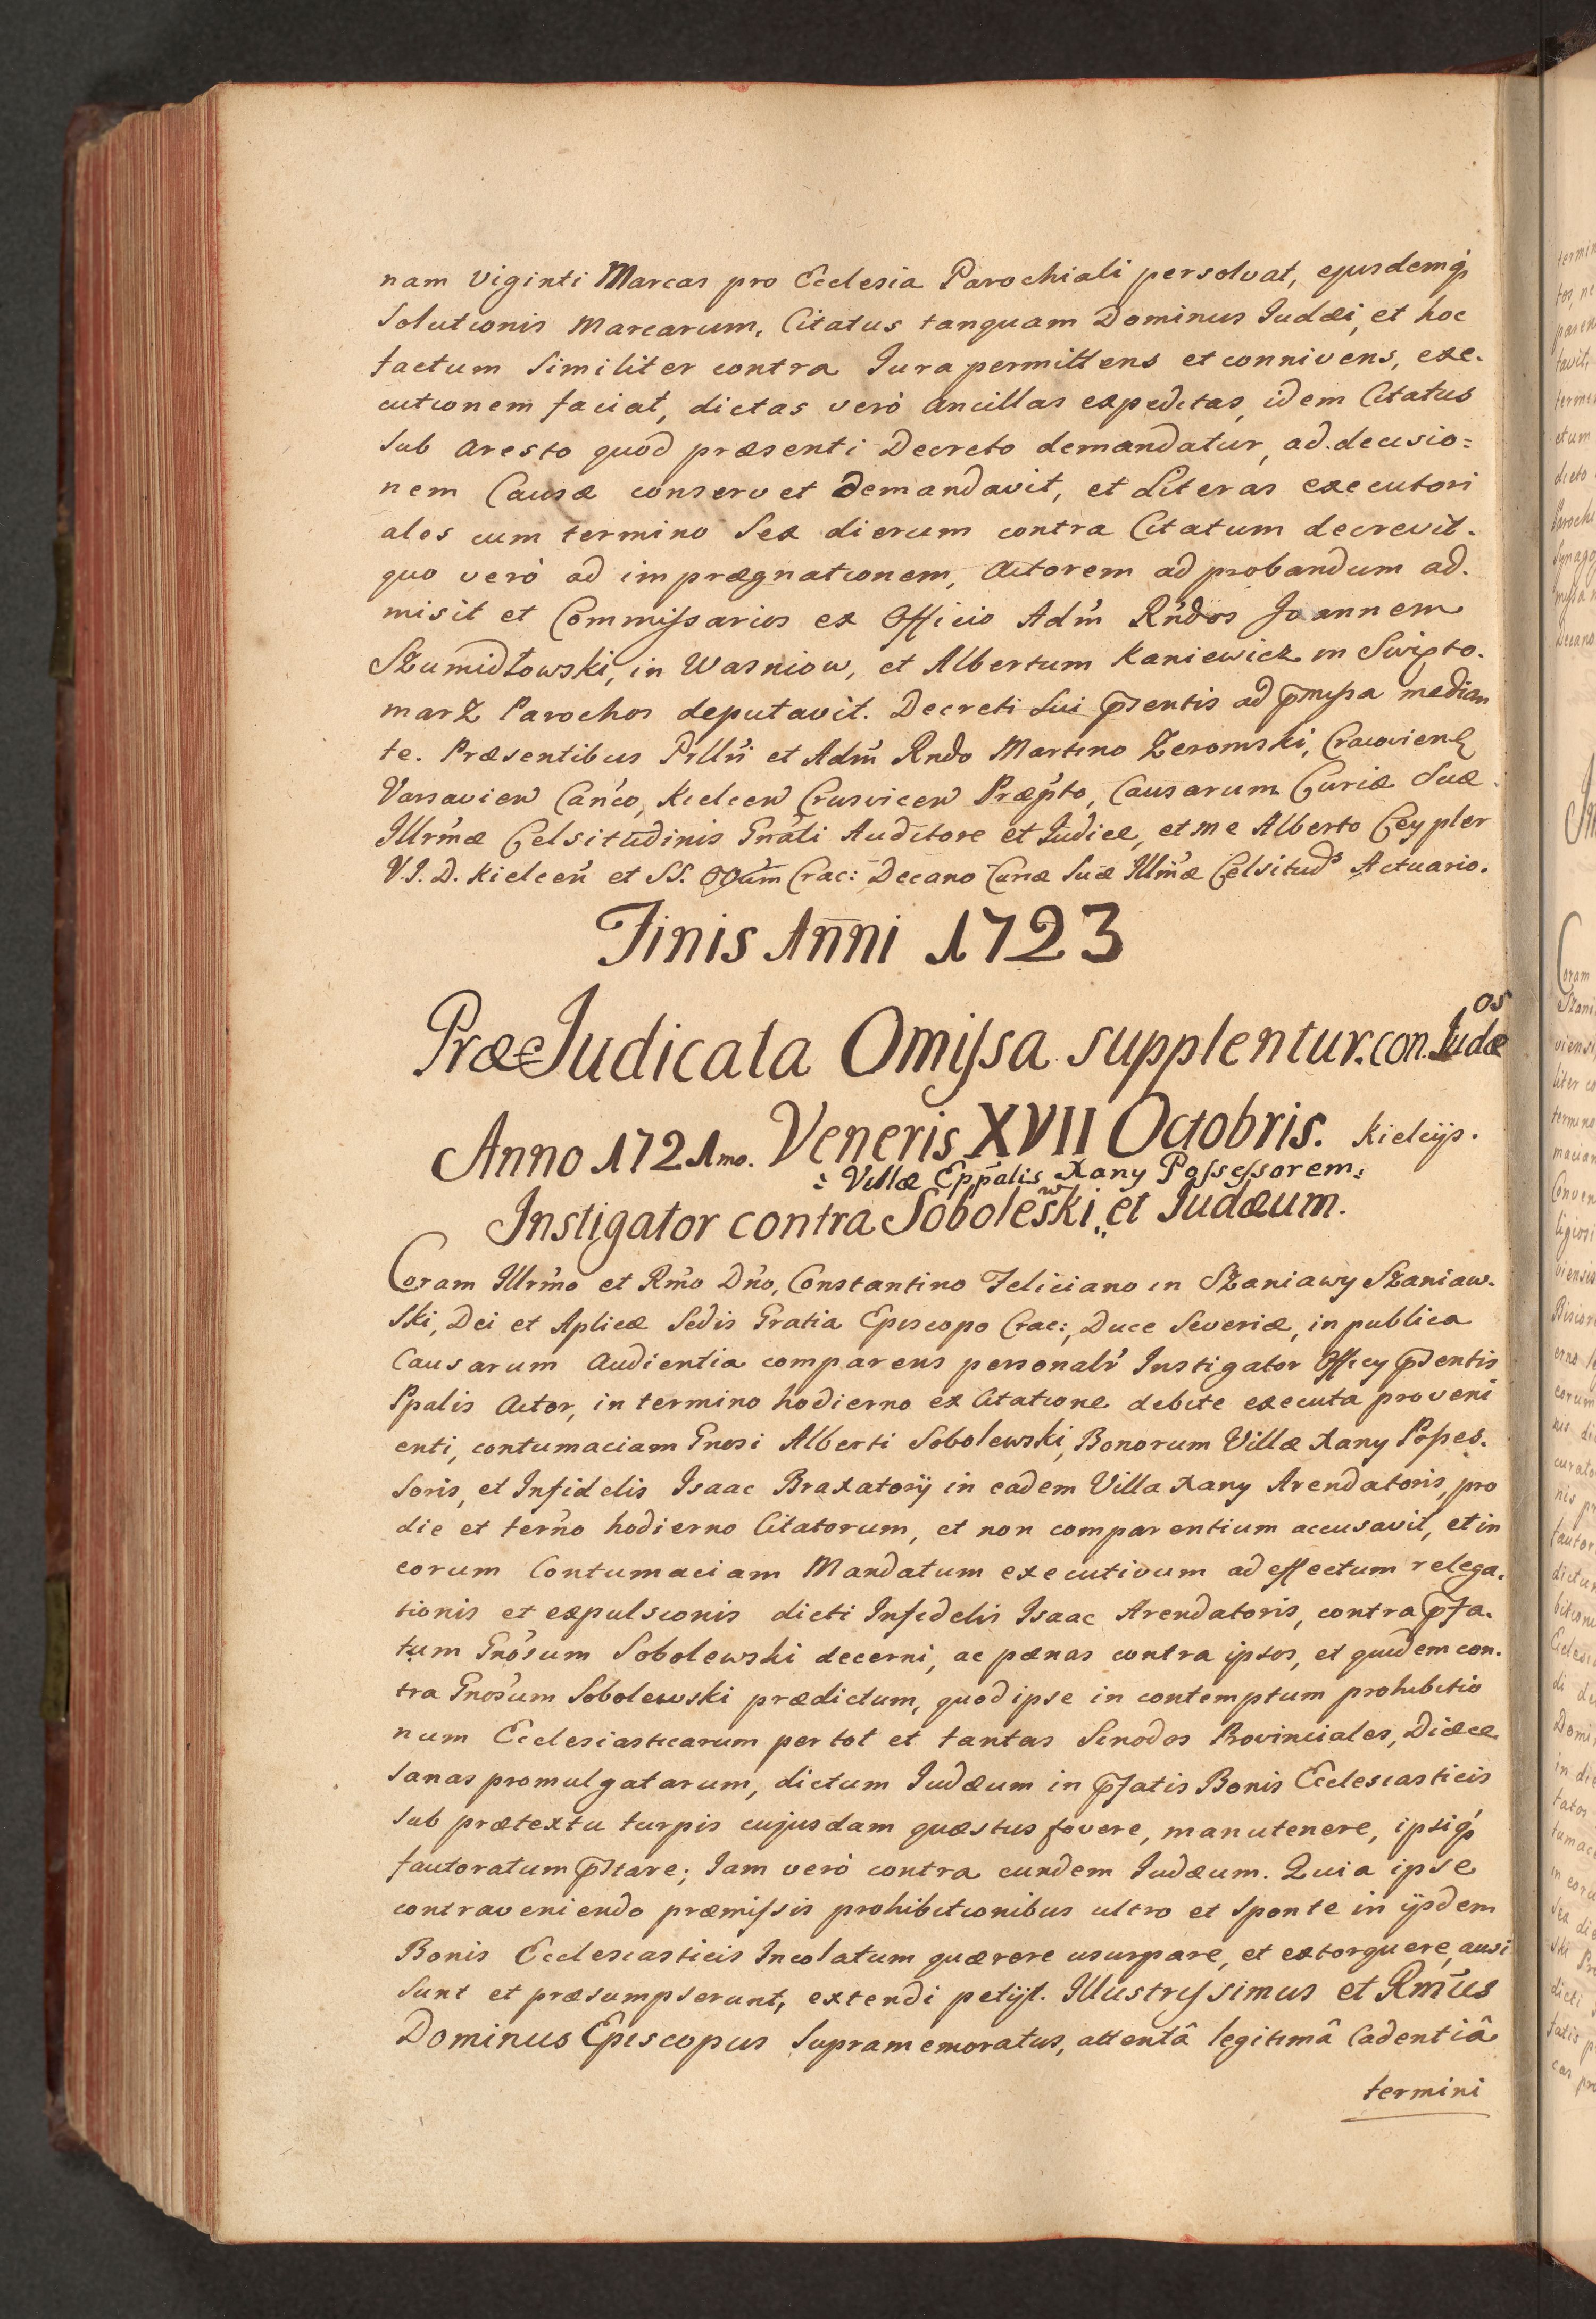 nam Viginti Marcas pro Ecclesia Parochiali persolvat, ejusdemq́
Solutionis Marcarum, Citatus tanquam Dominus Iudæi, et hoc
factum Similiter contra Iura permittens et connivens, exe-
cutionem faciat, dictas verò Ancillas expeditas, idem Citatus
Sub Aresto quod præsenti Decreto demandatur, ad decisio=
nem Causæ conservet demandavit, et Literas executori
ales cum termino Sex dierum contra Citatum decrevit.
quo verò ad imprægnationem, Actorem ad probandum ad-
misit et Commissarios ex Officio Adm̃ Rńdos Joannem
Szumidłowski, in Wasniow, et Albertum Kaniewicz in Swięto-
marz Parochos deputavit. Decreti sui p̃sentis ad p̃missa median
te. Præsentibus Prlłri et Adm̃ Rndo Martino Zeromski, Cracovien̄
Varsavien̄ Can̄co, Kielcen̄ Crusvicen̄ Præp̃to, Causarum Curiæ Suæ
Illrmæ Celsitudinis Gńali Auditore et Iudice, et me Alberto Ceypler
V.I.D. Kielcen̄ et SS. OO̅um Crac: Decano Curiæ Suæ Illmæ Celsitud̃s Actuario.
Finis Anni 1723
PræeJudicata Omissa supplentur. con. Iudæ os
Anno 1721mo. Veneris XVII Octobris. Kielcijs.
: Villæ Ep̃palis Xany Possessorem:
Instigator contra Soboleswki,, et Iudæum.
Coram Illrmo et Rm̃o Dńo, Constantino Feliciano in Szaniawy Szaniaw-
ski, Dei et Aplicæ Sedis Gratia Episcopo Crac:, Duce Severiæ, in publica
Causarum Audientia comparens personalr̃ Instigator Officij p̃sentis
Ppalis Actor, in termino hodierno ex Citatione debite executa proveni
enti, contumaciam Gnosi Alberti Sobolewski, Bonorum Villæ Xany Posses-
soris, et Infidelis Isaac Braxatorij in eadem Villa Xany Arendatoris, pro
die et terńo hodierno Citatorum, et non comparentium accusavit, et in
eorum Contumaciam Mandatum executivum ad effectum relega-
tionis et expulsionis dicti Infidelis Isaac Arendatoris, contra p̃fa-
tum Gnosum Sobolewski decerni, ac pænas contra ipsos, et quidem con-
tra Gnosum Sobolewski prædictum, quod ipse in contemptum prohibitio
num Ecclesiasticarum per tot et tantas Sinodos Provinciales, Diæce
sanas promulgatarum, dictum Iudæum in p̃fatis Bonis Ecclesiasticis
Sub prætextu turpis cujusdam quæstus fovere, manutenere, ipsiq́
fautoratum p̃stare; Iam verò contra eundem Iudæum. Quia ipse
contraveniendo præmissis prohibitionibus ultro et sponte in ijsdem
Bonis Ecclesiasticis Incolatum quærere usurpare, et extorquere, ausi
Sunt et præsumpserunt, extendi petijt. Illustrissimus et Rm̃us
Dominus Episcopus Supramemoratus, attentâ legitimâ Cadentiâ
termini